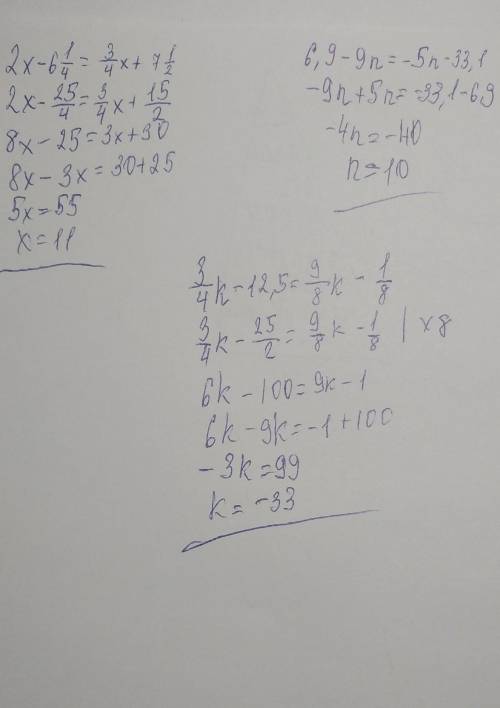 2x-6 1/4 = 3/4 x + 7 1/2
2x - 25/4 = 3/4 x + 15/2
8x - 25 = 3x + 30
8x - 3x = 30 + 25
5x = 55
x = 11
6,9 - 9n = -5n - 33,1
-9n + 5n = -33,1 - 6,9
-4n = -40
n = 10
3/4 k - 12,5 = 9/8 k - 1/8
3/4 k - 25/2 = 9/8 k - 1/8 | x 8
6k - 100 = 9k - 1
6k - 9k = -1 + 100
-3k = 99
k = -33